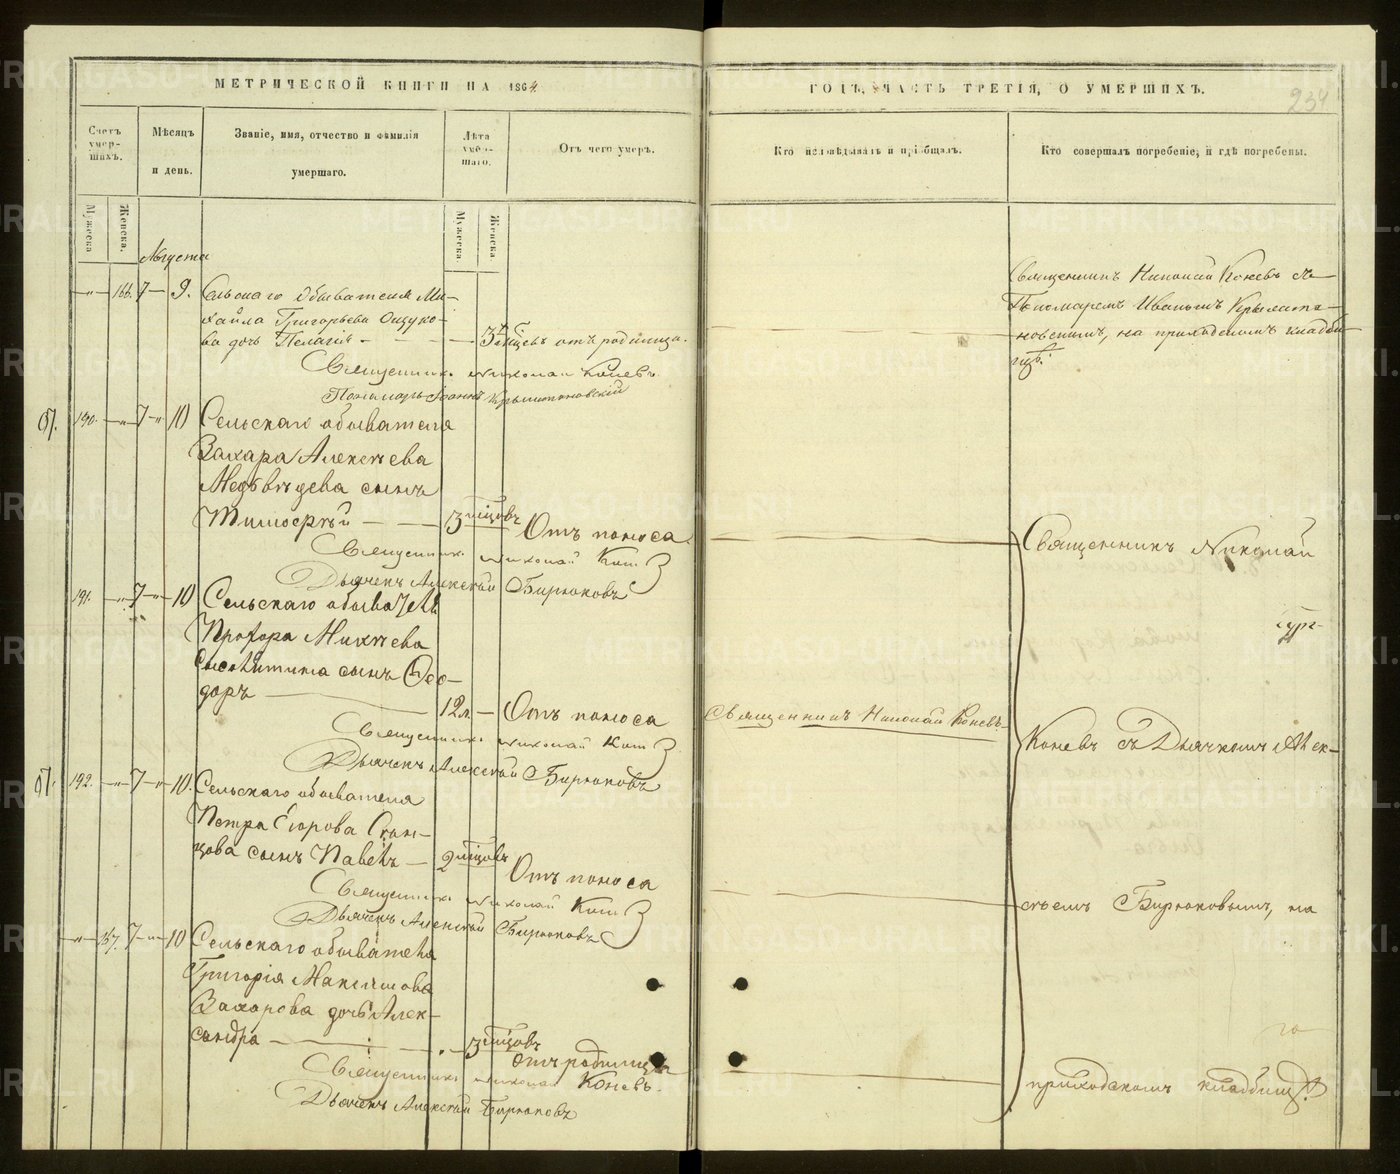 МЕТРИЧЕСКОЙ КНИГИ НА 1864
ГОДЪ, ЧАСТЬ ТРЕТІЯ, О УМЕРШИХЪ.
234
Счетъ умер-шихъ.
Мѣсяцъ и день.
Званіе, имя, отчество и фамилія умершаго.
Лѣта умер-шаго.
Отъ чего умеръ.
Кто исповѣдывалъ и пріобщалъ.
Кто совершалъ погребеніе, и гдѣ погребены.
Мужеска.
Женска.
Мужеска.
Женска.
Августа
166. 7 9. Сельскаго обывателя Ми-
хайла Григорьева
ва дочь Пелагія 3 мѣсцевъ отъ родимца.
Священникъ Николай Коневъ.
Пономарь Іоаннъ
Священникъ Николай Коневъ съ
Пономаремъ Иваномъ
новскимъ, на приходскомъ кладби-
щѣ.
190. 7 10 Сельскаго обывателя
Захара Алексѣева
Медвѣдева сынъ
Тимоѳей 3 мѣсцовъ Отъ поноса
Священникъ Николай Кон
Дьячекъ Алексѣй Бирюковъ
191. 7 10 Сельскаго обывателя
Прохора Михѣева
сынъ Ѳео-
доръ 12 л. Отъ поноса
Священникъ Николай Кон
Дьячекъ Алексѣй Бирюковъ
Священникъ Николай Коневъ.
192. 7 10. Сельскаго обывателя
Петра Егорова Скан-
цова сынъ Павелъ 2 мѣсцовъ Отъ поноса
Священникъ Николай Кон
Дьячекъ Алексѣй Бирюковъ
167. 7 10 Сельскаго обывателя
Григорія Максимова
Захарова дочь Алек-
сандра 3 мѣсцовъ Отъ родимца
Священникъ Николай Коневъ.
Дьячекъ Алексѣй Бирюковъ
Священникъ Николай
Коневъ съ Дьячкомъ Алек-
сѣемъ Бирюковымъ, на
приходскомъ кладбищѣ